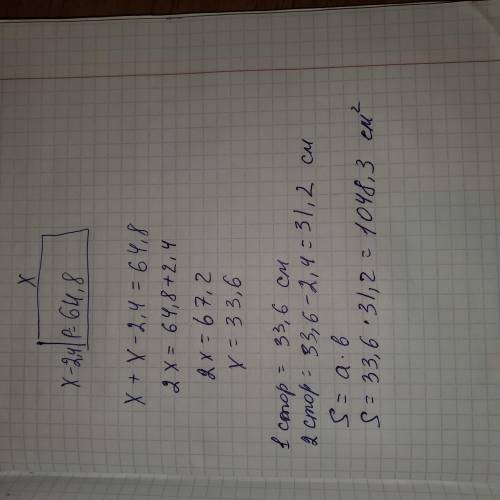 x
x-2,4 P=64,8
x + x - 2,4 = 64,8
2x = 64,8+2,4
2x = 67,2
x = 33,6
1 стор = 33,6 см
2 стор = 33,6 - 2,4 = 31,2 см
S = a · b
S = 33,6 · 31,2 = 1048,3 см²